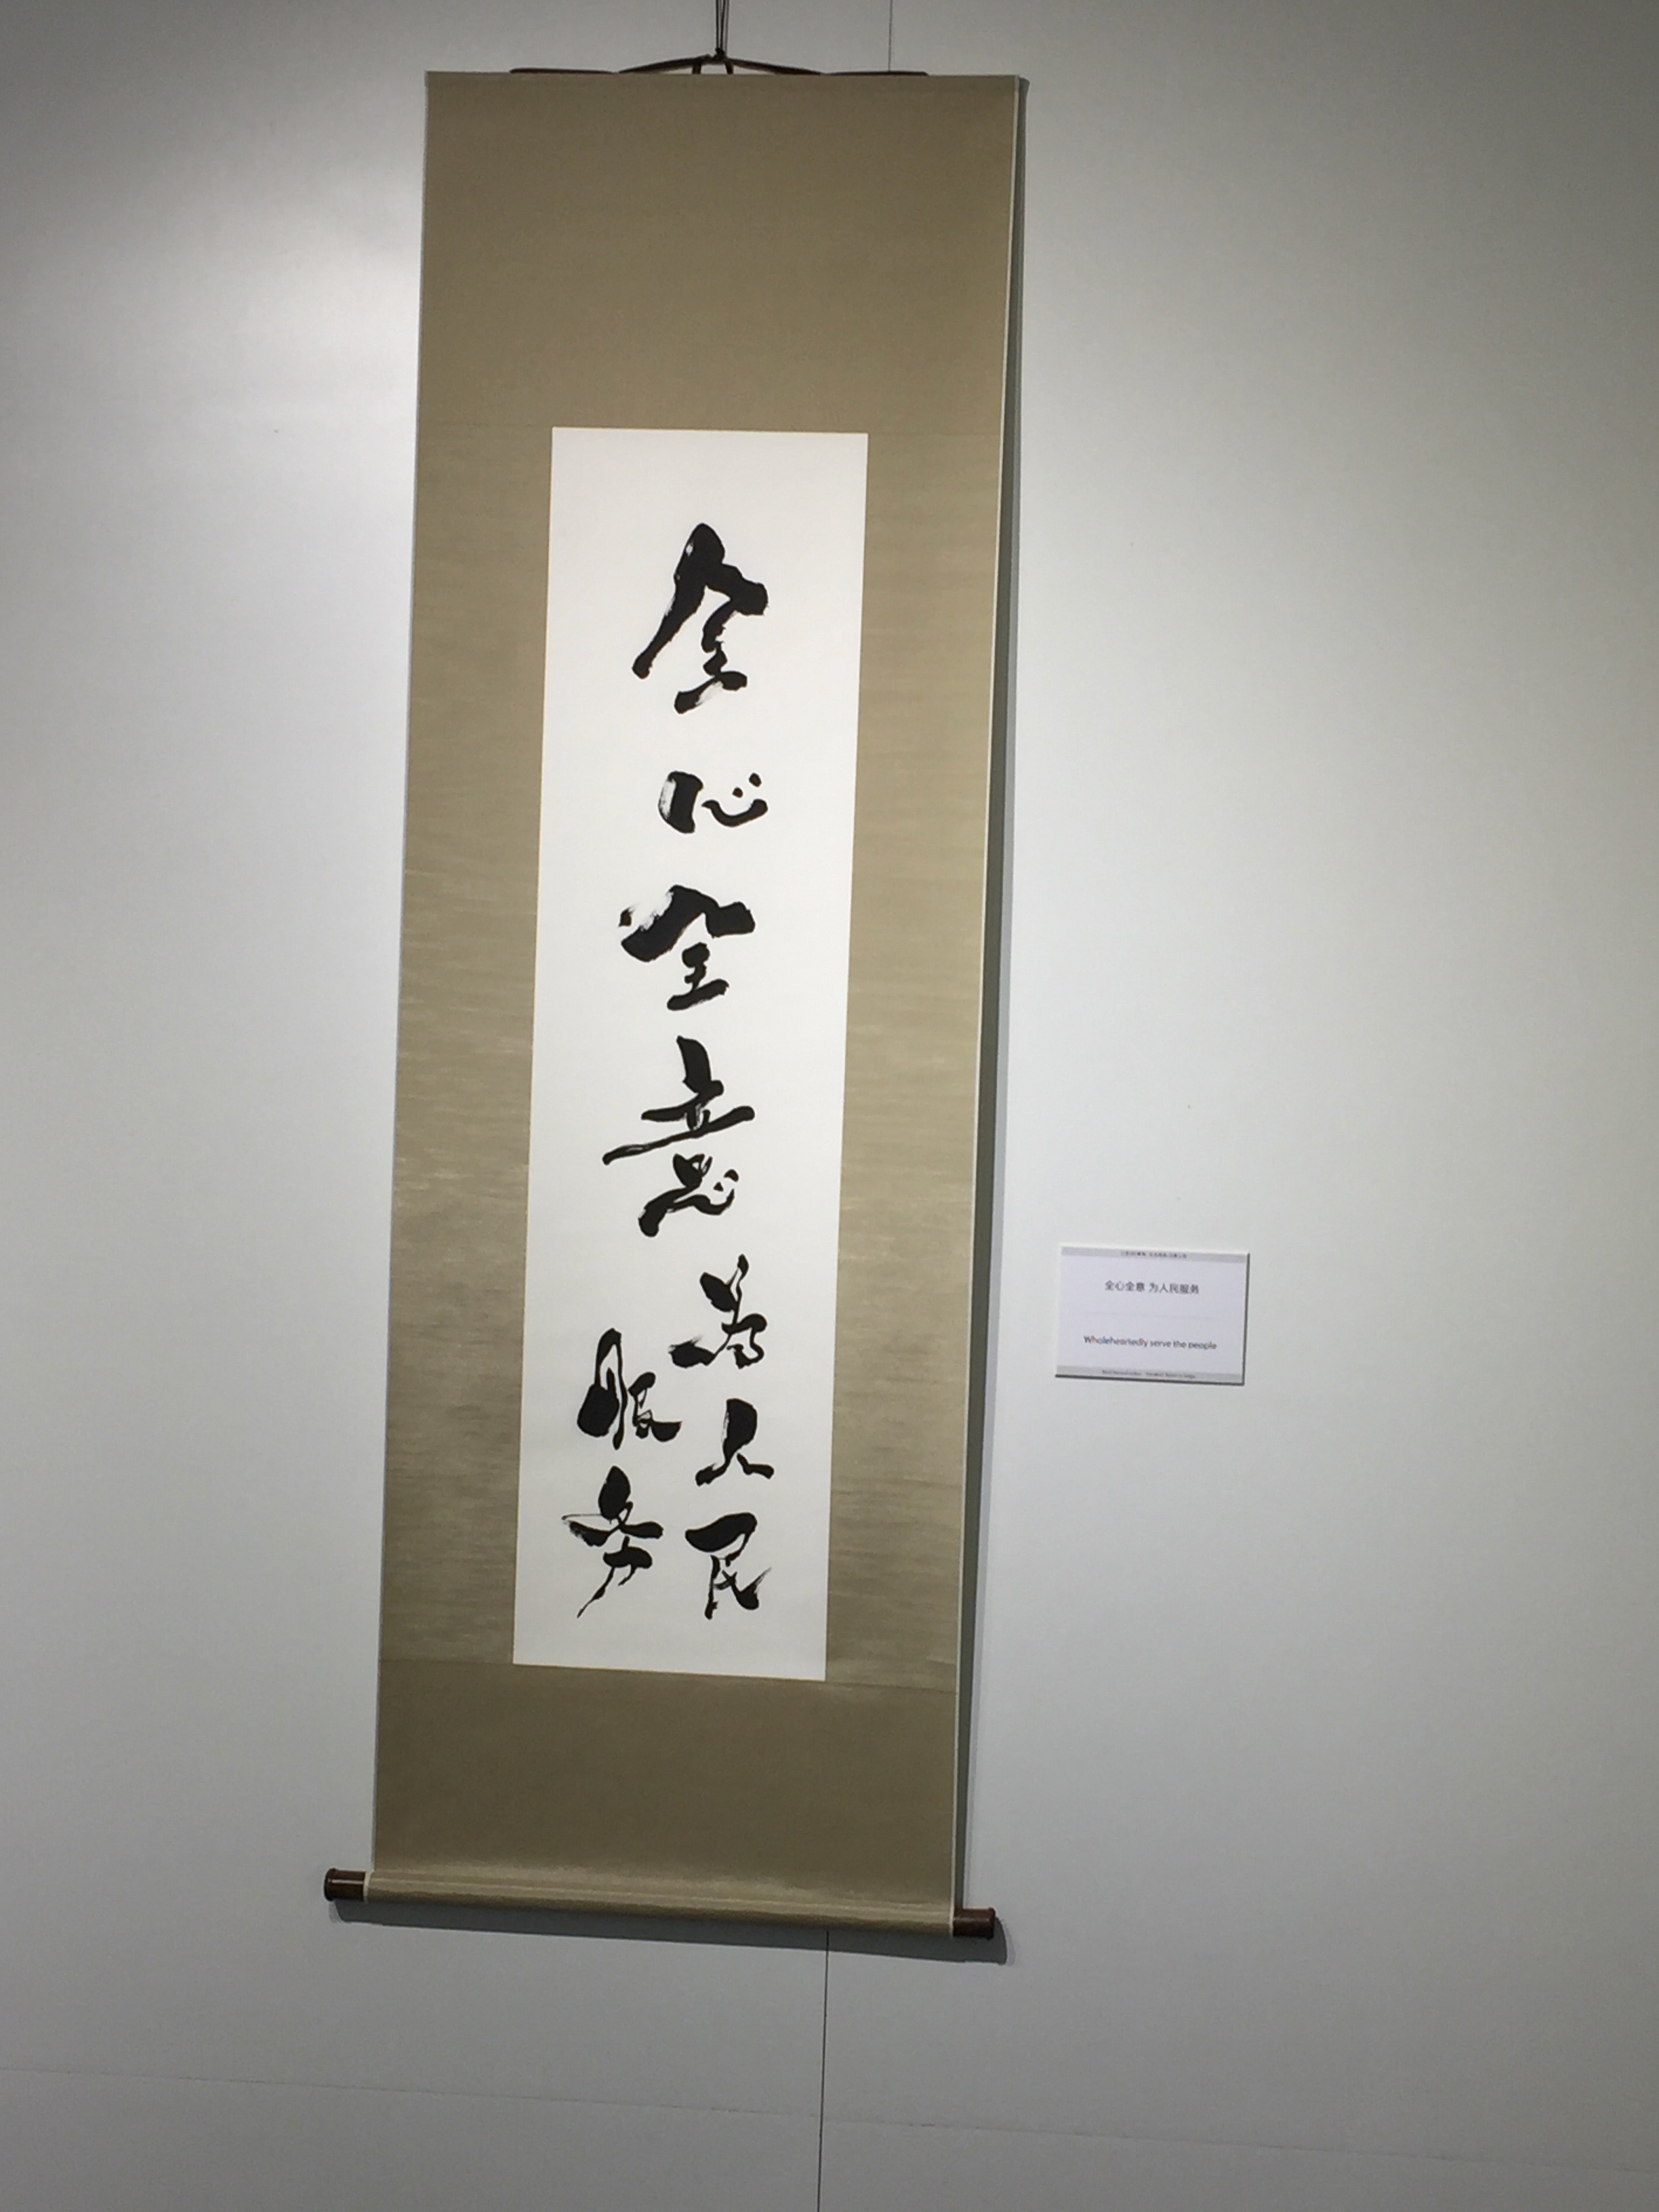 全心全意为人民
服务
全心全意 为人民服务
Wholeheartedly serve the people